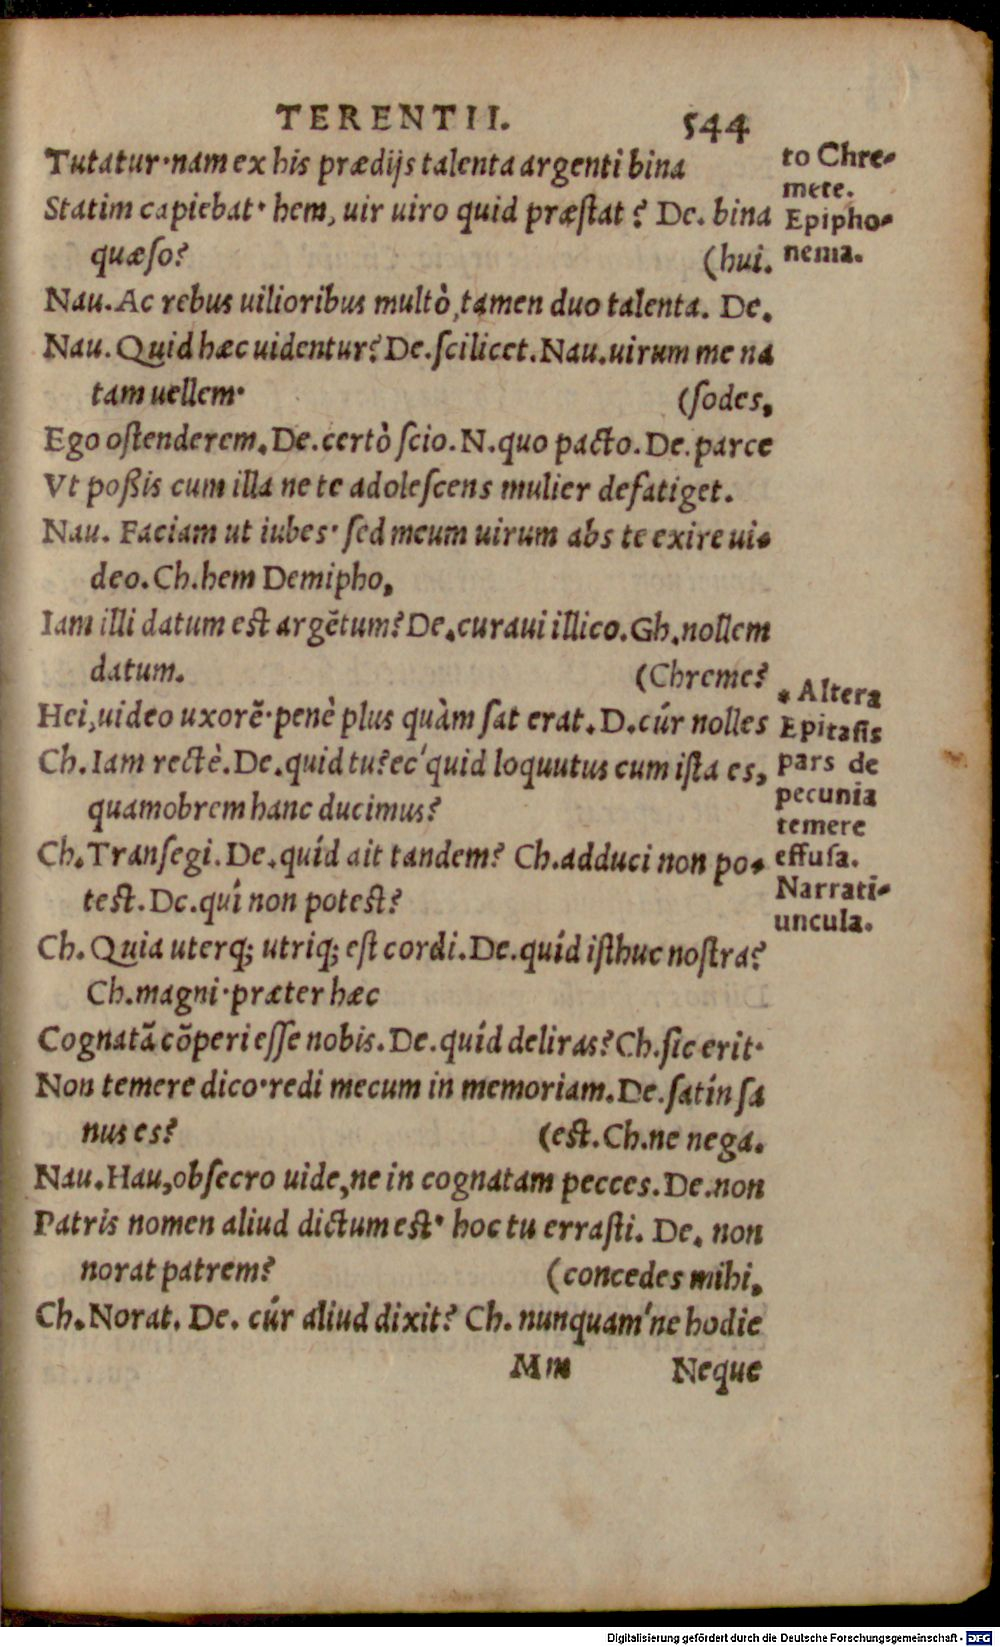 TERENTII. 544
Tutatur·nam ex his prædijs talenta argenti bina
Statim capiebat· hem, uir uiro quid præſtat? De. bina
quæſo? (hui.
Nau. Ac rebus uilioribus multò, tamen duo talenta. De.
Nau. Quid hæc uidentur? De. ſcilicet. Nau. uirum me na
tam uellem· (ſodes,
Ego oſtenderem. De. certò ſcio. N. quo pacto. De. parce
Vt poßis cum illa ne te adoleſcens mulier defatiget.
Nau. Faciam ut iubes· ſed meum uirum abs te exire ui-
deo. Ch. hem Demipho,
Iam illi datum est argẽtum? De. curaui illico. Gh. nollem
datum. (Chreme?
Hei, uideo uxorẽ·penè plus quàm ſat erat. D. cúr nolles
Ch. Iam rectè. De. quid tu? ec'quid loquutus cum iſta es,
quamobrem hanc ducimus?
Ch. Tranſegi. De. quíd ait tandem? Ch. adduci non po-
test. De. quí non potest?
Ch. Quia uterq; utriq; eſt cordi. De. quíd iſthuc noſtra?
Ch. magni·præter hæc
Cognatã cõperi eſſe nobis. De. quíd deliras? Ch. ſic erit·
Non temere dico·redi mecum in memoriam. De. ſatín ſa
nus es? (est. Ch. ne nega.
Nau. Hau, obſecro uide, ne in cognatam pecces. De. non
Patris nomen aliud dictum est· hoc tu erraſti. De. non
norat patrem? (concedes mihi,
Ch. Norat. De. cúr aliud dixit? Ch. nunquam'ne hodie
Mm Neque
to Chre-
mete.
Epipho-
nema.
* Altera
Epitaſis
pars de
pecunia
temere
effuſa.
Narrati-
uncula.
Digitalisierung gefördert durch die Deutsche Forschungsgemeinschaft - DFG